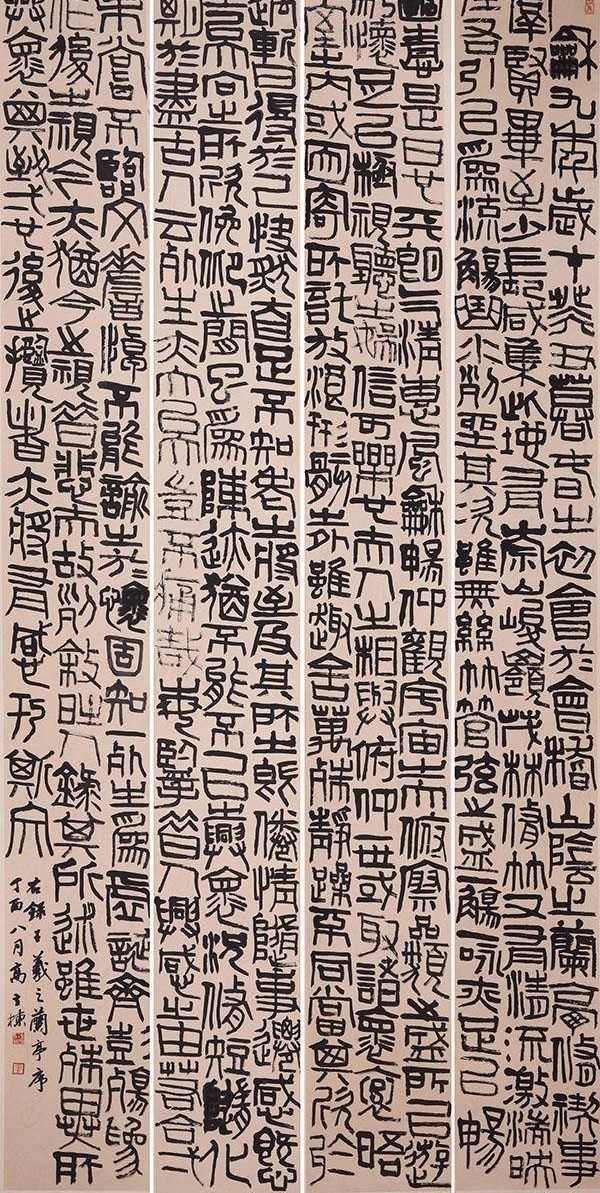 龢九年歲在癸丑暮春之初會於會稽山陰之蘭亭脩禊事
羣賢畢至少長咸集此地有崇山峻嶺茂林脩竹又有清流激湍暎
左右引以為流觴曲水列坐其次雖無絲竹管弦之盛一觴一詠亦足以暢
情是日也天朗氣清惠風龢暢仰觀宇宙之大俯察品類之盛所以遊
騁懷足以極視聽之娛信可樂也夫人之相與俯仰一世或取諸懷抱
室之內或因寄所託放浪形骸之外雖趣舍萬殊靜躁不同當其欣於
遇暫得於己快然自足不知老之將至及其所之既倦情隨事遷感慨
矣向之所欣俛仰之間以為陳迹猶不能不以之興懷況脩短隨化
期於盡古人云死生亦大矣豈不痛哉每攬昔人興感之由若合一
未嘗不臨文嗟悼不能喻之於懷固知一死生為虛誕齊彭殤為
作後之視今亦猶今之視昔悲夫故列敘時人錄其所述雖世殊事異所
興懷其致一也後之攬者亦將有感於斯文
右錄王羲之蘭亭序
丁酉八月高棟